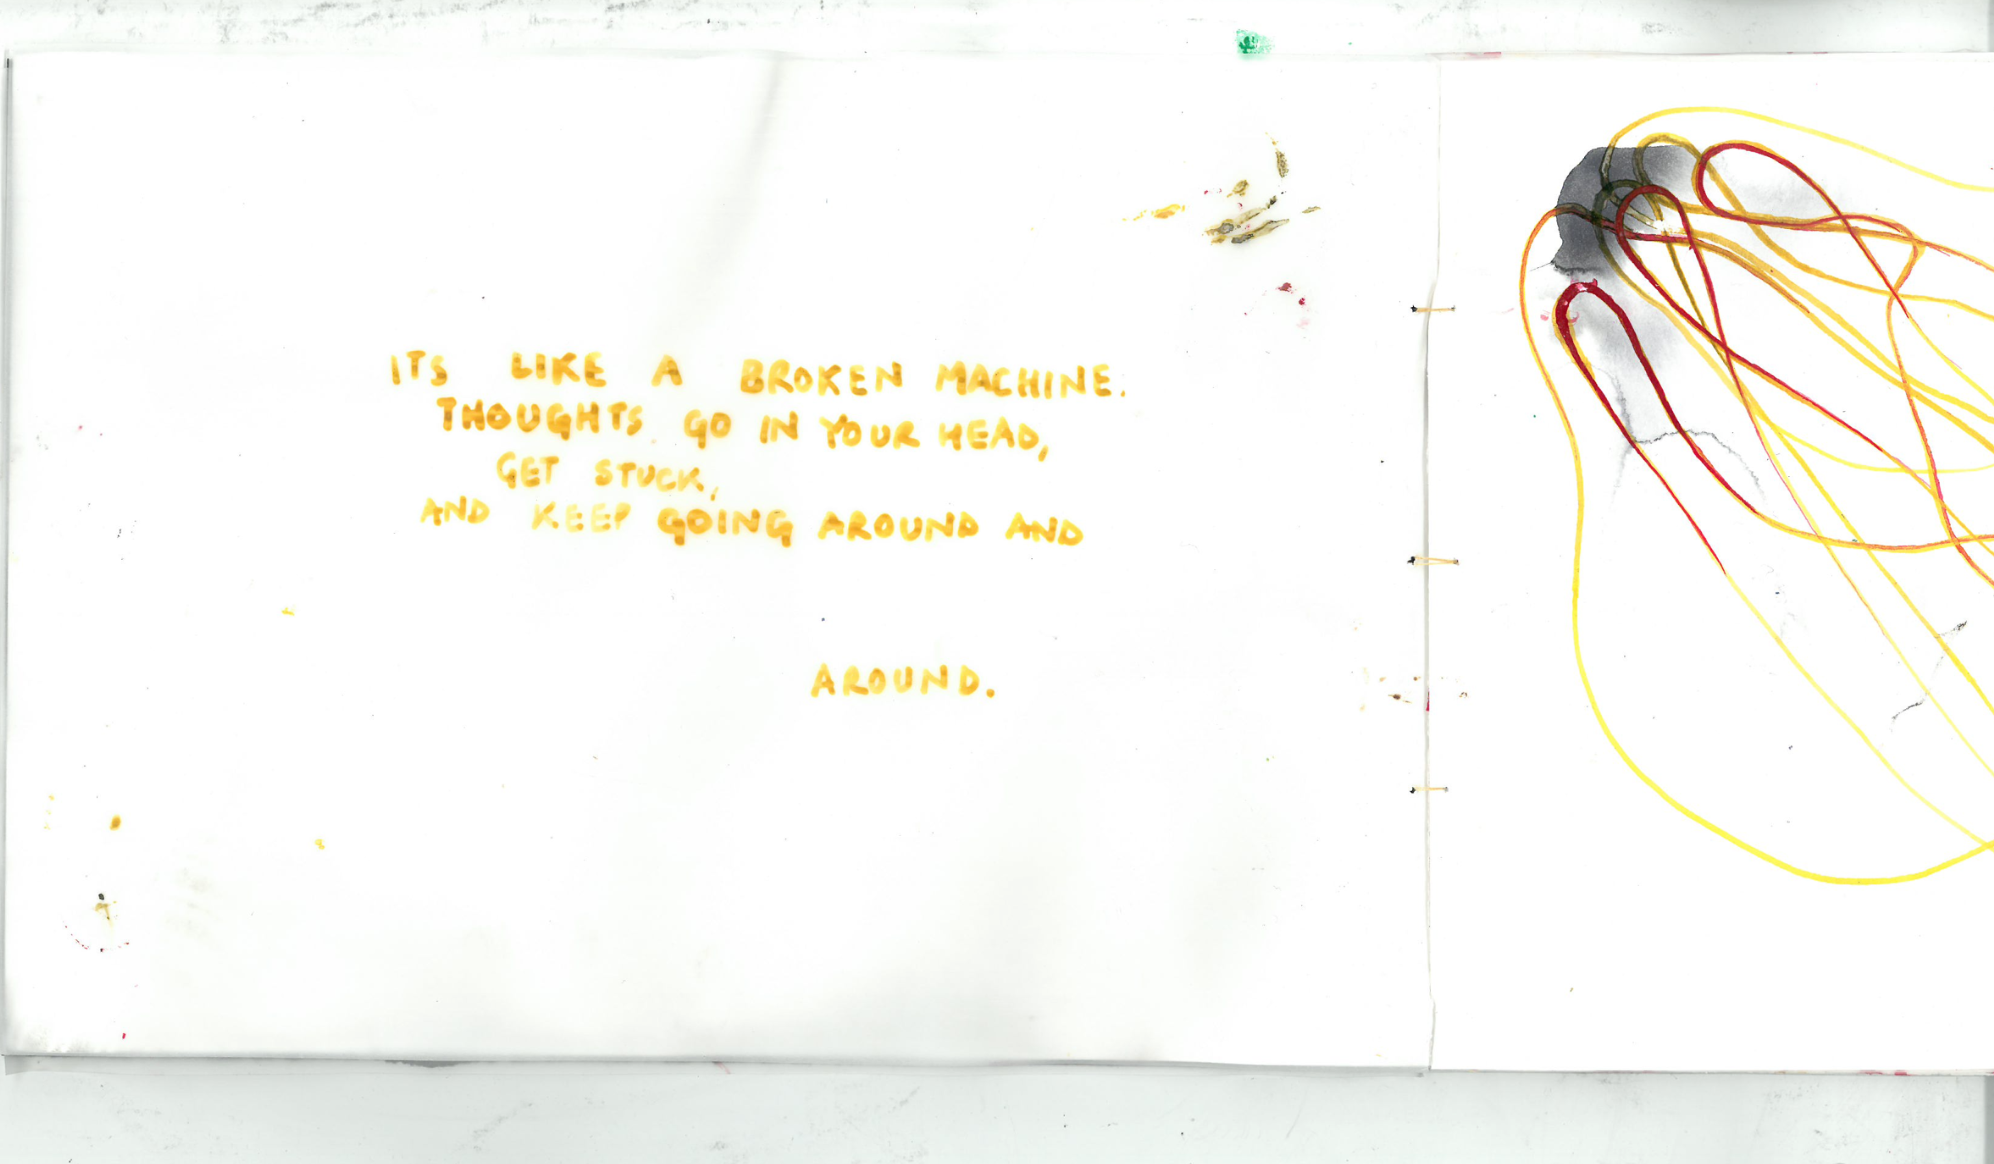 ITS LIKE A BROKEN MACHINE.
THOUGHTS GO IN YOUR HEAD,
GET STUCK,
AND KEEP GOING AROUND AND
AROUND.